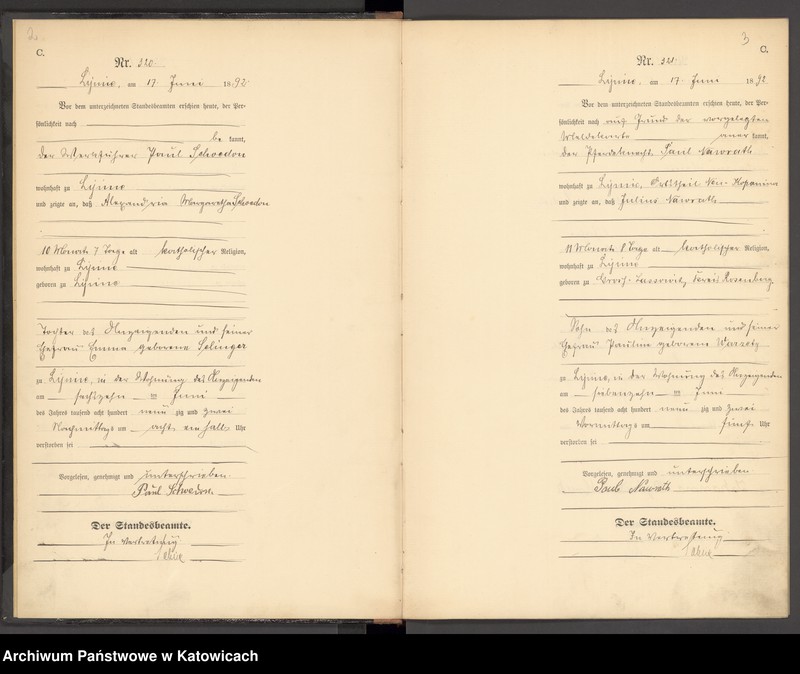 2
C.
Nr. 320.
Lipine, am 17 Juni 1892
Vor dem unterzeichneten Standesbeamten erschien heute, der Per-
sönlichkeit nach
be kannt,
der Werkführer Paul Schwedon
wohnhaft zu Lipine
und zeigte an, daß Alexandria Margaretha Schwedon
10 Monate 7 Tage alt katholischer Religion,
wohnhaft zu Lipine
geboren zu Lipine
Tochter des Anzeigenden und seiner
Ehefrau Emma geborene Selinger
zu Lipine, in der Wohnung des Anzeigenden
am sechszehn ten Juni
des Jahres tausend acht hundert neun zig und zwei
Nachmittags um acht ein halb Uhr
verstorben sei
Vorgelesen, genehmigt und unterschrieben
Paul Schwedon.
Der Standesbeamte.
In Vertretung
3
C.
Nr. 321.
Lipine, am 17 Juni 1892
Vor dem unterzeichneten Standesbeamten erschien heute, der Per-
sönlichkeit nach auf Grund der vorgelegten
Meldekarte aner kannt,
der Pferdeknecht Paul Nawrath
wohnhaft zu Lipine, Ortstheil Neu-Kopanina
und zeigte an, daß Julius Nawrath
11 Monate 8 Tage alt katholischer Religion,
wohnhaft zu Lipine
geboren zu Gross-Lassowitz, Kreis Rosenberg
Sohn des Anzeigenden und seiner
Ehefrau Pauline geborene
zu Lipine, in der Wohnung des Anzeigenden
am siebenzehn ten Juni
des Jahres tausend acht hundert neun zig und zwei
Vormittags um fünf Uhr
verstorben sei
Vorgelesen, genehmigt und unterschrieben
Paul Nawrath
Der Standesbeamte.
In Vertretung
Archiwum Państwowe w Katowicach